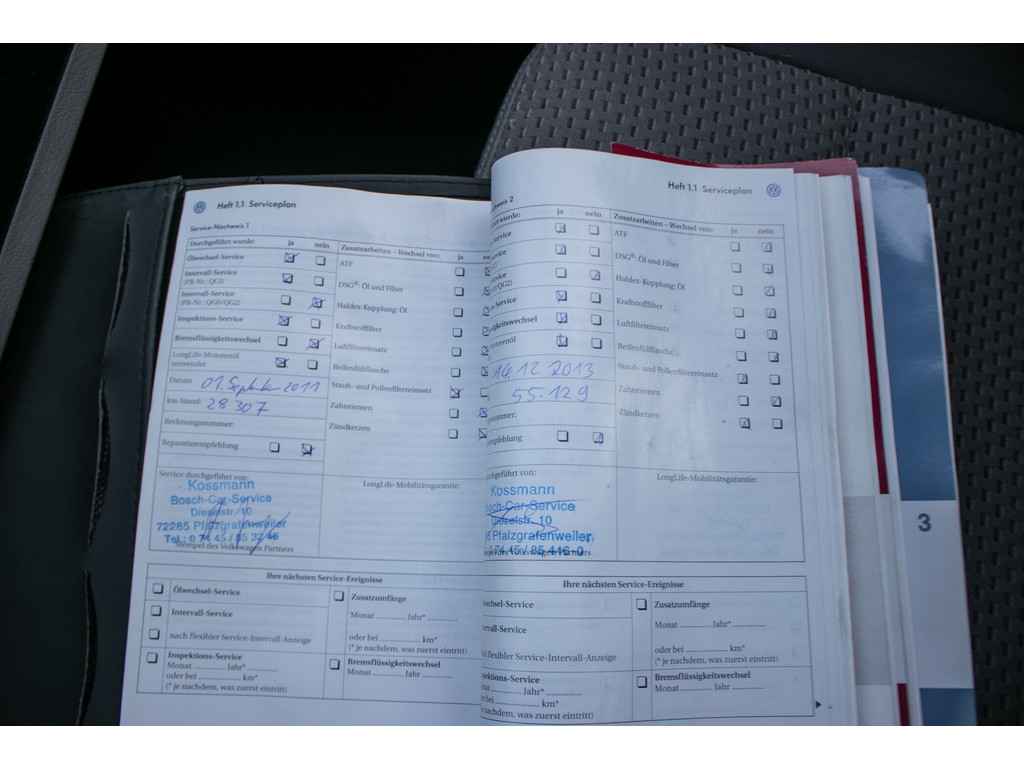 Heft 1.1 Serviceplan
Service-Nachweis 1
Durchgeführt wurde: ja nein
Ölwechsel-Service
Intervall-Service
(PR-Nr.: QG1)
Intervall-Service
(PR-Nr.: QG0/QG2)
Inspektions-Service
Bremsflüssigkeitswechsel
LongLife-Motorenöl
verwendet
Datum: 01. September 2011
km-Stand: 28 307
Rechnungsnummer:
Reparaturempfehlung
Zusatzarbeiten – Wechsel von: ja
ATF
DSG®: Öl und Filter
Haldex-Kupplung: Öl
Kraftstofffilter
Luftfiltereinsatz
Reifenfüllflasche
Staub- und Pollenfiltereinsatz
Zahnriemen
Zündkerzen
Service durchgeführt von:
Kossmann
Bosch-Car-Service
Dieselstr. 10
72285 Pfalzgrafenweiler
Tel.: 0 74 45 / 85
Stempel des Volkswagen Partners
LongLife-Mobilitätsgarantie:
Ihre nächsten Service-Ereignisse
Ölwechsel-Service
Intervall-Service
nach flexibler Service-Intervall-Anzeige
Inspektions-Service
Monat Jahr*
oder bei km*
(* je nachdem, was zuerst eintritt)
Zusatzumfänge
Monat Jahr*
oder bei km*
(* je nachdem, was zuerst eintritt)
Bremsflüssigkeitswechsel
Monat Jahr
Heft 1.1 Serviceplan
weis 2
wurde: ja nein
ervice
QG2)
-Service
gkeitswechsel
orenöl
12 2013
55.129
nummer:
mpfehlung
Zusatzarbeiten – Wechsel von: ja nein
ATF
DSG®: Öl und Filter
Haldex-Kupplung: Öl
Kraftstofffilter
Luftfiltereinsatz
Reifenfüllflasche
Staub- und Pollenfiltereinsatz
Zahnriemen
Zündkerzen
chgeführt von:
Kossmann
osch-Car-Service
Dieselstr. 10
Pfalzgrafenweiler
74 45 / 85 416-0
LongLife-Mobilitätsgarantie:
Ihre nächsten Service-Ereignisse
chsel-Service
rvall-Service
flexibler Service-Intervall-Anzeige
ektions-Service
Jahr*
km*
nachdem, was zuerst eintritt)
Zusatzumfänge
Monat Jahr*
oder bei km*
(* je nachdem, was zuerst eintritt)
Bremsflüssigkeitswechsel
Monat Jahr
3